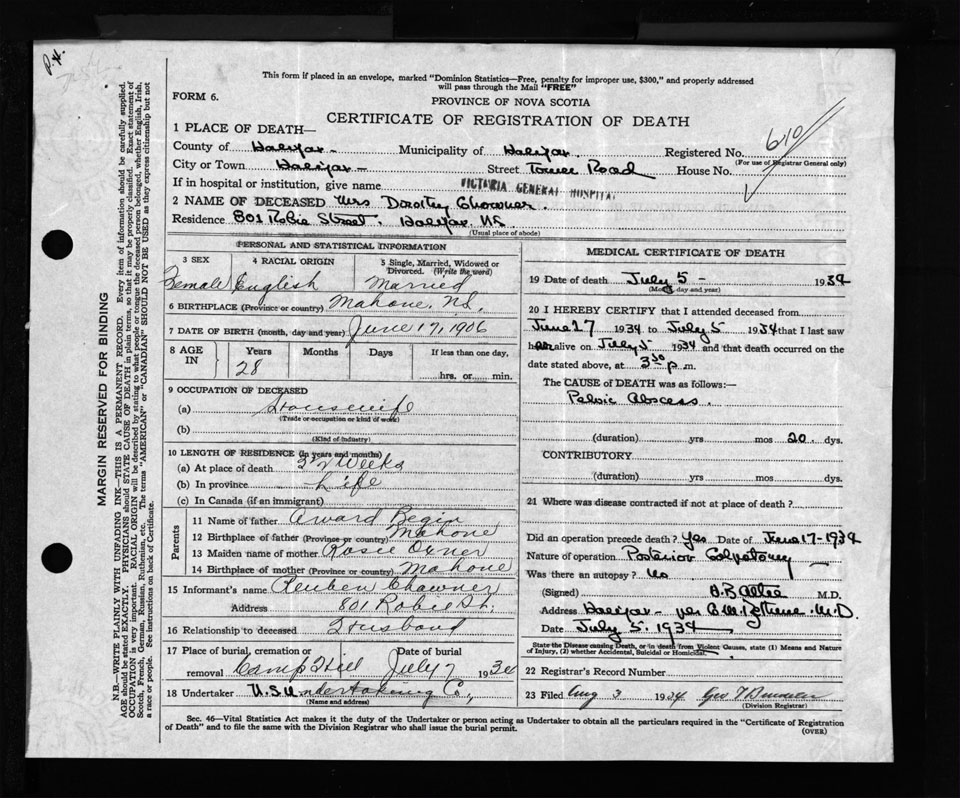 P. 4.
This form if placed in an envelope, marked "Dominion Statistics—Free, penalty for improper use, $300," and properly addressed
will pass through the Mail "FREE"
FORM 6.
PROVINCE OF NOVA SCOTIA
CERTIFICATE OF REGISTRATION OF DEATH
610
1 PLACE OF DEATH—
County of Halifax - Municipality of Halifax. Registered No.
(For use of Registrar General only)
City or Town Halifax - Street Tower Road House No.
If in hospital or institution, give name VICTORIA GENERAL HOSPITAL
2 NAME OF DECEASED Mrs Dorothy Chawner.
Residence 801 Robie Street. Halifax. N.S.
(Usual place of abode)
PERSONAL AND STATISTICAL INFORMATION
3 SEX 4 RACIAL ORIGIN 5 Single, Married, Widowed or
Divorced. (Write the word)
Female English Married
6 BIRTHPLACE (Province or country) Mahone, N.S.
7 DATE OF BIRTH (month, day and year) June 17, 1906
8 AGE IN Years Months Days If less than one day,
28 hrs. or min.
9 OCCUPATION OF DECEASED
(a) Housewife
(Trade or occupation or kind of work)
(b)
(Kind of industry)
10 LENGTH OF RESIDENCE (in years and months)
(a) At place of death Weeks
(b) In province Life
(c) In Canada (if an immigrant)
Parents
11 Name of father Award
12 Birthplace of father (Province or country) Mahone
13 Maiden name of mother Rosie
14 Birthplace of mother (Province or country) Mahone
15 Informant's name Reuben Chawner
Address 801 Robie St.
16 Relationship to deceased Husband
17 Place of burial, cremation or Date of burial
removal Camp Hill July 7 1934
18 Undertaker N.S. Undertaking Co.,
(Name and address)
MEDICAL CERTIFICATE OF DEATH
19 Date of death July 5 - 1934
(Month, day and year)
20 I HEREBY CERTIFY that I attended deceased from
June 27 1934 to July 5 1934 that I last saw
her alive on July 5 1934 and that death occurred on the
date stated above, at 3 30 p. m.
The CAUSE of DEATH was as follows:—
Pelvic Abscess.
(duration) yrs mos 20. dys.
CONTRIBUTORY
(duration) yrs mos dys.
21 Where was disease contracted if not at place of death?
Did an operation precede death? Yes Date of June 17-1934
Nature of operation Posterior Colpotomy
Was there an autopsy? No
(Signed) M.D.
Address Halifax - per M.D
Date July 5. 1934
State the Disease causing Death, or in death from Violent Causes, state (1) Means and Nature
of Injury, (2) whether Accidental, Suicidal or Homicidal.
22 Registrar's Record Number
23 Filed Aug 3 1934 Geo
(Division Registrar)
Sec. 46—Vital Statistics Act makes it the duty of the Undertaker or person acting as Undertaker to obtain all the particulars required in the "Certificate of Registration
of Death" and to file the same with the Division Registrar who shall issue the burial permit.
(OVER)
MARGIN RESERVED FOR BINDING
N.B.—WRITE PLAINLY WITH UNFADING INK—THIS IS A PERMANENT RECORD. Every item of information should be carefully supplied.
AGE should be stated EXACTLY. PHYSICIANS should STATE CAUSE OF DEATH in plain terms, so that it may be properly classified. Exact statement of
OCCUPATION is very important. RACIAL ORIGIN will be described by stating to what people or tongue the deceased person belonged, whether English, Irish,
Scotch, French, German, Russian, Ruthenian, etc. The terms "AMERICAN" or "CANADIAN" SHOULD NOT BE USED as they express citizenship but not
a race or people. See instructions on back of Certificate.